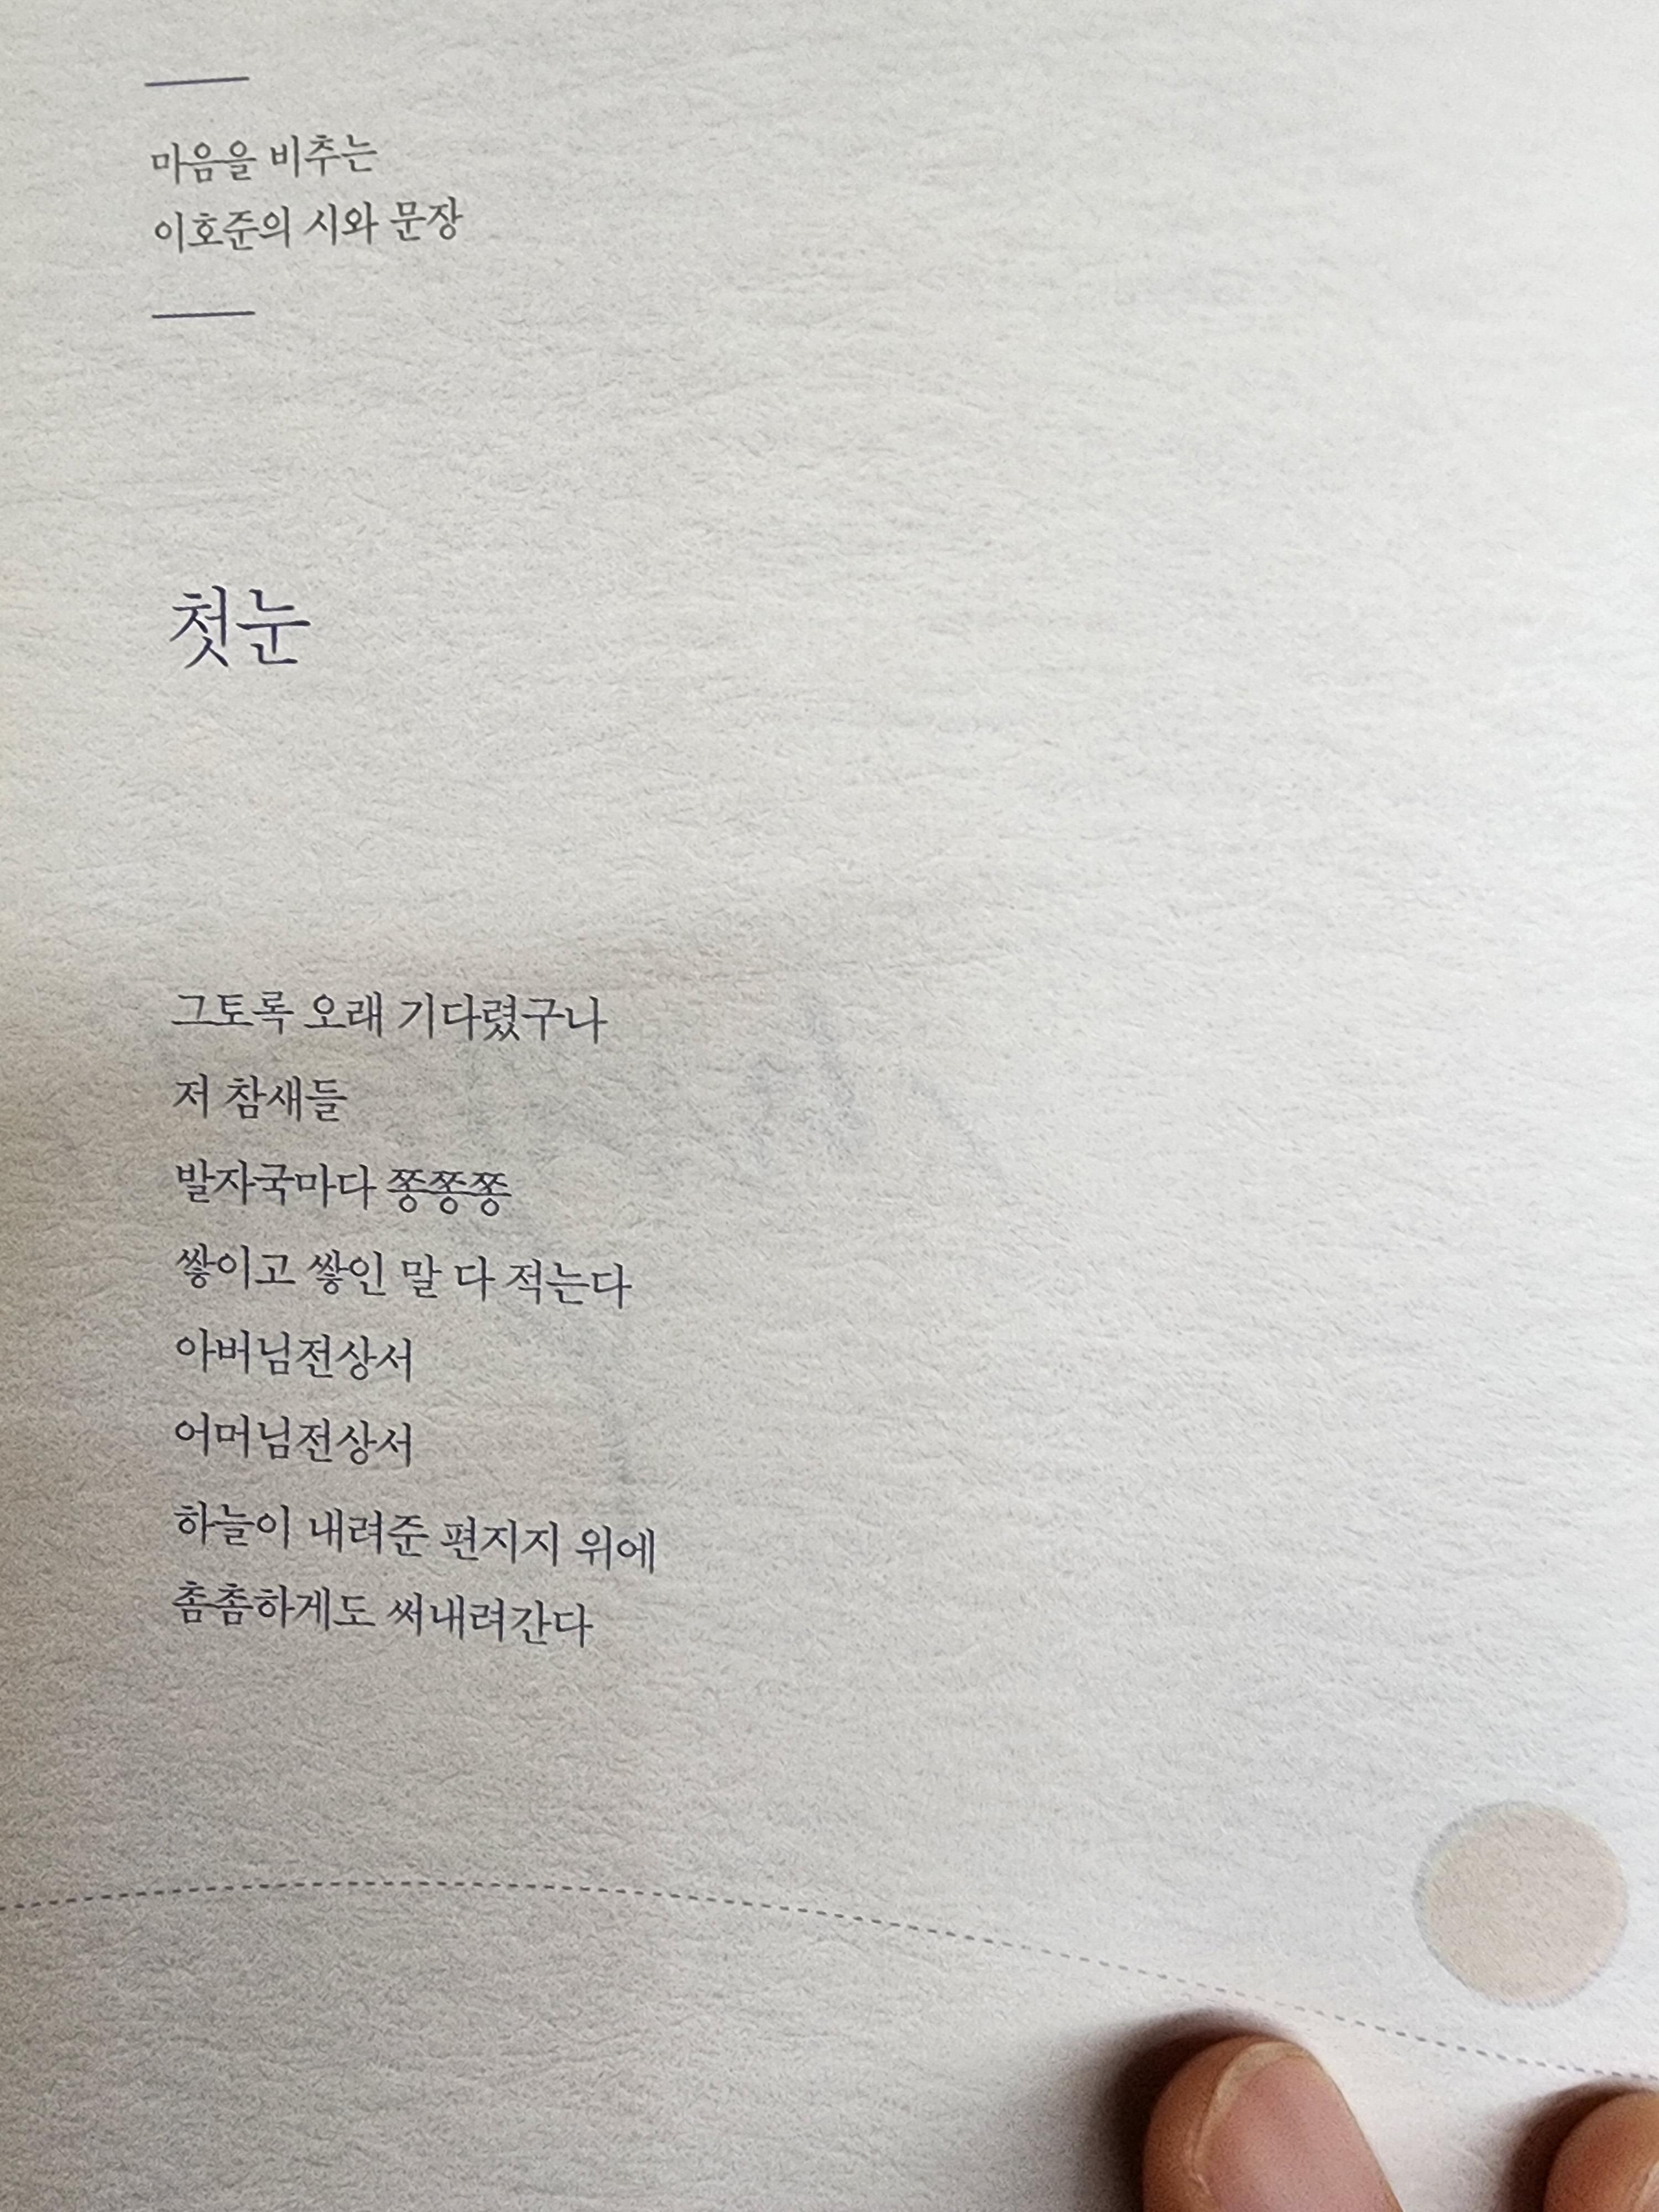 마음을 비추는
이호준의 시와 문장
첫눈
그토록 오래 기다렸구나
저 참새들
발자국마다 쫑쫑쫑
쌓이고 쌓인 말 다 적는다
아버님전상서
어머님전상서
하늘이 내려준 편지지 위에
촘촘하게도 써내려간다